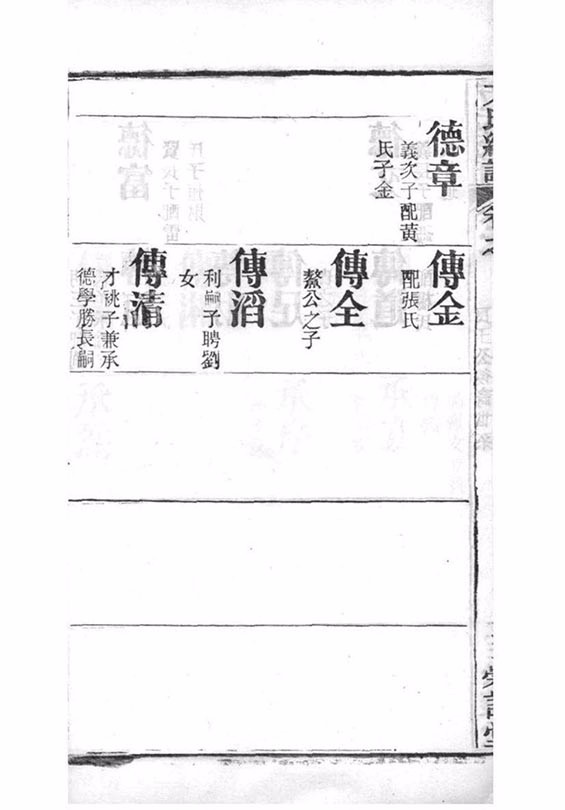 德章
義次子配黃
氏子金
傳金
配張氏
傳全
鰲公之子
傳滔
利嗣子聘劉
女
傳清
才祧子兼承
德學勝長嗣